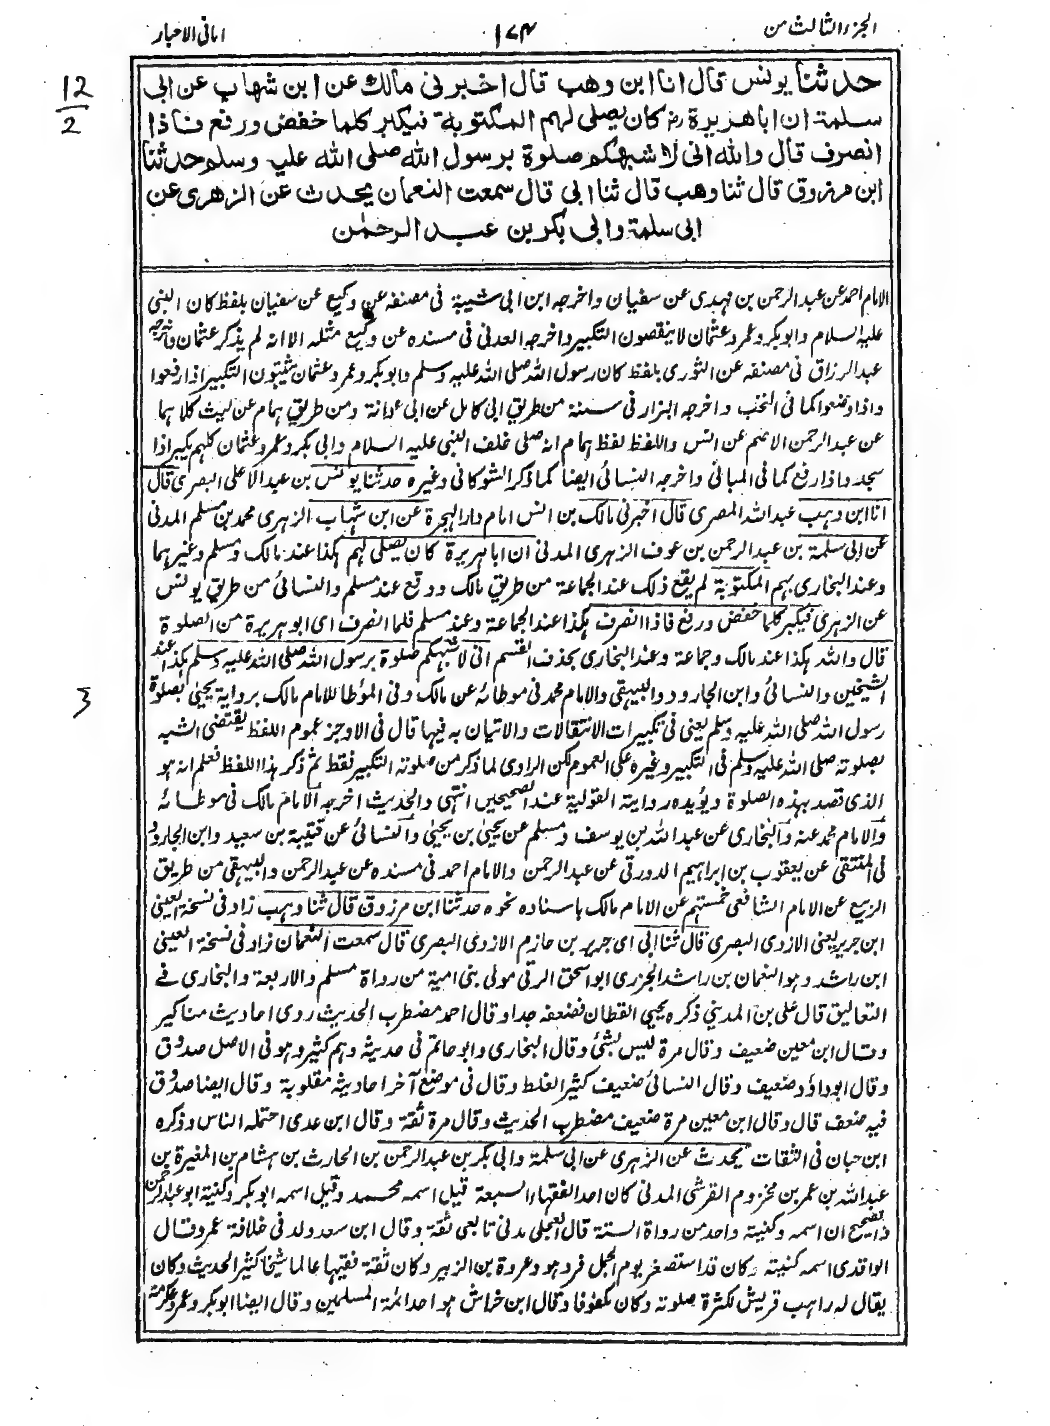 الجزء الثالث من
١٧٤
امانی الاحبار
12/2
حدثنا يونس قال انا ابن وهب قال اخبرنی مالك عن ابن شهاب عن ابی
سلمة ان ابا هريرة رض كان يصلی لهم المكتوبة فيكبر كلما خفض ورفع فاذا
انصرف قال والله انی لاشبهكم صلوة برسول الله صلی الله عليه وسلم حدثنا
ابن مرزوق قال ثنا وهب قال ثنا ابی قال سمعت النعمان يحدث عن الزهری عن
ابی سلمة وابی بكر بن عبد الرحمٰن
الامام احمد عن عبد الرحمن بن مهدی عن سفيان واخرجه ابن ابی شيبة فی مصنفه عن وكيع عن سفيان بلفظ كان النبی
عليه السلام وابوبكر وعمر وعثمان لا ينقصون التكبير واخرجه العدنی فی مسنده عن وكيع مثله الا انه لم يذكر عثمان واخرجه
عبد الرزاق فی مصنفه عن الثوری بلفظ كان رسول الله صلی الله عليه وسلم وابوبكر وعمر وعثمان يثبتون التكبير اذا رفعوا
واذا وضعوا كما فی النخب واخرجه البزار فی سننه من طريق ابی كامل عن ابی عوانة ومن طريق همام عن ليث كلاهما
عن عبد الرحمن الاصم عن انس واللفظ لفظ همام انه صلی خلف النبی عليه السلام وابی بكر وعمر وعثمان كلهم يكبر اذا
سجد واذا رفع كما فی المبانی واخرجه النسائی ايضا كما ذكر الشوكانی وغيره حدثنا يونس بن عبد الاعلی البصری قال
انا ابن وهب عبد الله المصری قال اخبرنی مالك بن انس امام دار الهجرة عن ابن شهاب الزهری محمد بن مسلم المدنی
عن ابی سلمة بن عبد الرحمن بن عوف الزهری المدنی ان ابا هريرة كان يصلی لهم هكذا عند مالك ومسلم وغيرهما
وعند البخاری بهم المكتوبة لم يقع ذلك عند الجماعة من طريق مالك ووقع عند مسلم والنسائی من طريق يونس
عن الزهری فيكبر كلما خفض ورفع فاذا انصرف هكذا عند الجماعة وعند مسلم فلما انصرف ای ابو هريرة من الصلوة
قال والله هكذا عند مالك وجماعة وعند البخاری بحذف القسم انی لاشبهكم صلوة برسول الله صلی الله عليه وسلم هكذا عند
الشيخين والنسائی وابن الجارود والبيهقی والامام محمد فی موطائه عن مالك وفی المؤطا للامام مالك برواية يحيی بصلوة
رسول الله صلی الله عليه وسلم يعنی فی تكبيرات الانتقالات والاتيان به فيها قال فی الاوجز عموم اللفظ يقتضی الشبه
بصلوته صلی الله عليه وسلم فی التكبير وغيره علی العموم لكن الراوی لما ذكر من صلوته التكبير فقط ثم ذكر هذا اللفظ فعلم انه هو
الذی قصد بهذه الصلوة ويؤيده رواية القولية عند الصحيحين انتهی والحديث اخرجه الامام مالك فی موطائه
والامام محمد عنه والبخاری عن عبد الله بن يوسف ومسلم عن يحيی بن يحيی والنسائی عن قتيبة بن سعيد وابن الجارود
فی المنتقی عن يعقوب بن ابراهيم الدورقی عن عبد الرحمن والامام احمد فی مسنده عن عبد الرحمن والبيهقی من طريق
الربيع عن الامام الشافعی خمستهم عن الامام مالك باسناده نحوه حدثنا ابن مرزوق قال ثنا وهب زاد فی نسخة العينی
ابن جرير يعنی الازدی البصری قال ثنا ابی ای جرير بن حازم الازدی البصری قال سمعت النعمان زاد فی نسخة العينی
ابن راشد وهو النعمان بن راشد الجزری ابو اسحق الرقی مولی بنی امية من رواة مسلم والاربعة والبخاری فے
التعاليق قال علی بن المدينی ذكره يحيی القطان فضعفه جدا وقال احمد مضطرب الحديث روی احاديث مناكير
وقال ابن معين ضعيف وقال مرة ليس بشیٔ وقال البخاری وابو حاتم فی حديثه وهم كثير وهو فی الاصل صدوق
وقال ابو داؤد ضعيف وقال النسائی ضعيف كثير الغلط وقال فی موضع آخر احاديثه مقلوبة وقال ايضا صدوق
فيه ضعف قال وقال ابن معين مرة ضعيف مضطرب الحديث وقال مرة ثقة وقال ابن عدی احتمله الناس وذكره
ابن حبان فی الثقات يحدث عن الزهری عن ابی سلمة وابی بكر بن عبد الرحمن بن الحارث بن هشام بن المغيرة بن
عبد الله بن عمر بن مخزوم القرشی المدنی كان احد الفقهاء السبعة قيل اسمه محمد وقيل اسمه ابو بكر وكنيته ابو عبد الرحمن
والصحيح ان اسمه وكنيته واحد من رواة الستة قال العجلی مدنی تابعی ثقة وقال ابن سعد ولد فی خلافة عمر وقال
الواقدی اسمه كنيته وكان قد استصغر يوم الجمل فرد هو وعروة بن الزبير وكان ثقة فقيها عالما شيخا كثير الحديث وكان
يقال له راهب قريش لكثرة صلوته وكان مكفوفا وقال ابن خراش هو احد ائمة المسلمين وقال ايضا ابو بكر وعمر وعكرمة
3